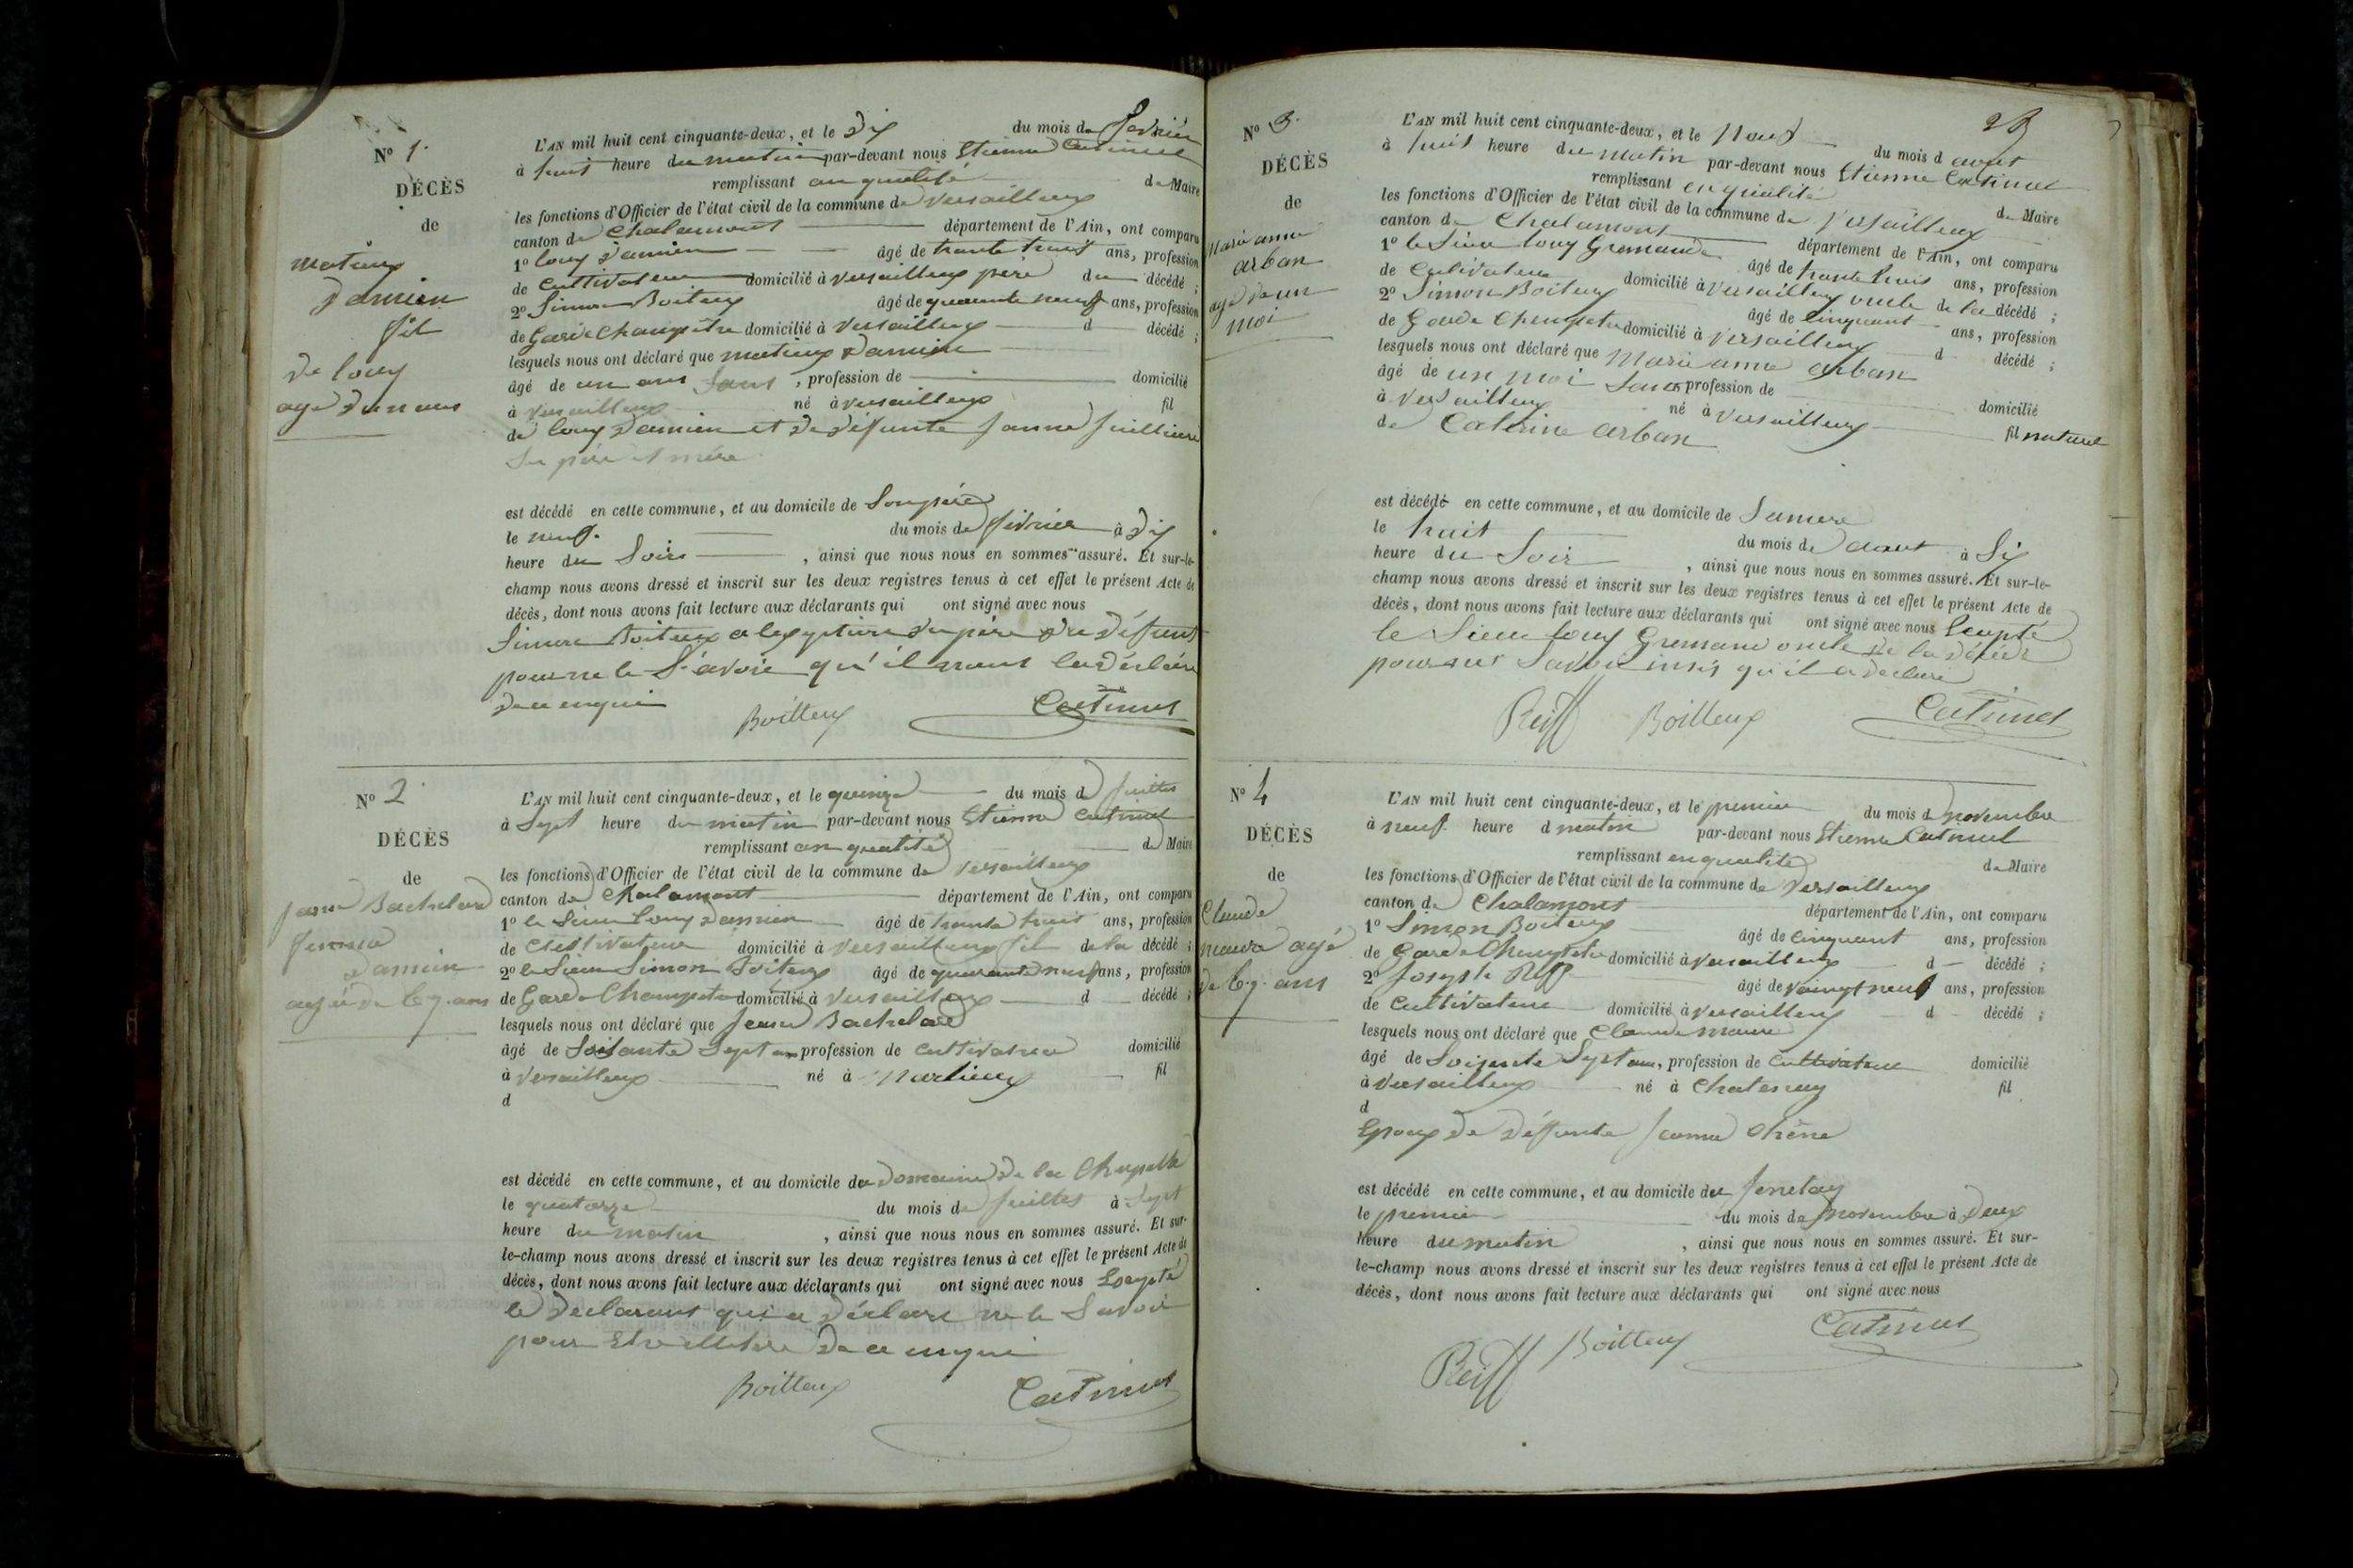 N° 1.
DÉCÈS
de
mathieux
Damien
fil
de louy
agé d'un ans
L'AN mil huit cent cinquante-deux, et le dix du mois de février
à huit heure du matin par-devant nous Etienne Catimel
remplissant en qualité de Maire
les fonctions d'Officier de l'état civil de la commune de Versailleux
canton de Chalamont département de l'Ain, ont comparu
1° louy Damien âgé de trante trois ans, profession
de Cultivateur domicilié à Versailleux père du décédé ;
2° Simon Boiteux âgé de quarante neuf ans, profession
de Garde Champêtre domicilié à Versailleux d décédé ;
lesquels nous ont déclaré que matieux Damien
âgé de un ans Sans , profession de domicilié
à Versailleux né à Versailleux fil
de louy Damien et de défunte Janne
Ses père et mère
est décédé en cette commune, et au domicile de Son père
le neuf. du mois de février à dix
heure du Soir , ainsi que nous nous en sommes assuré. Et sur-le-
champ nous avons dressé et inscrit sur les deux registres tenus à cet effet le présent Acte de
décès, dont nous avons fait lecture aux déclarants qui ont signé avec nous
Simon Boiteux a lexseption du père du défunt
pour ne le Savoir qu'il nous la déclaré
de ce enquis
Boitteux Catimel
N° 2
DÉCÈS
de
Janne Bachelard
femme
Damien
agée de 67 ans
L'AN mil huit cent cinquante-deux, et le quinze du mois de juillet
à Sept heure du matin par-devant nous Etienne Catimel
remplissant en qualité de Maire
les fonctions d'Officier de l'état civil de la commune de Versailleux
canton de Chalamont département de l'Ain, ont comparu
1° le Sieur louy Damien âgé de trante trois ans, profession
de Cultivateur domicilié à Versailleux fil de la décédé ;
2° le Sieur Simon Boiteux âgé de quarante neuf ans, profession
de Garde Champetre domicilié à Versailleux d décédé ;
lesquels nous ont déclaré que Jeanne Bachelard
âgé de Soisante Sept ans profession de Cultivatrice domicilié
à Versailleux né à Marlieux fil
d
est décédé en cette commune, et au domicile du domaine de la Chapelle
le quatorze du mois de juillet à Sept
heure du matin , ainsi que nous nous en sommes assuré. Et sur-
le-champ nous avons dressé et inscrit sur les deux registres tenus à cet effet le présent Acte de
décès, dont nous avons fait lecture aux déclarants qui ont signé avec nous Exepté
le declarant qui a déclaré ne le Savoir
pour de ce enquis
Boitteux Catimel
N° 3.
DÉCÈS
de
Marie anne
arban
agé de un
moi
23
L'AN mil huit cent cinquante-deux, et le Neuf du mois d aout
à huit heure du matin par-devant nous Etienne Catimel
remplissant en qualité de Maire
les fonctions d'Officier de l'état civil de la commune de Versailleux
canton de Chalamont département de l'Ain, ont comparu
1° le Sieur louy Gremaud âgé de trante trois ans, profession
de Cultivateur domicilié à Versailleux oncle de la décédé ;
2° Simon Boiteux âgé de Cinquant ans, profession
de Garde Champetre domicilié à Versailleux d décédé ;
lesquels nous ont déclaré que Marie anne arban
âgé de un moi Sans profession de domicilié
à Versailleux né à Versailleux fil naturel
de Caterine arban
est décédé en cette commune, et au domicile de Sa mere
le huit du mois de aout à Six
heure du Soir , ainsi que nous nous en sommes assuré. Et sur-le-
champ nous avons dressé et inscrit sur les deux registres tenus à cet effet le présent Acte de
décès, dont nous avons fait lecture aux déclarants qui ont signé avec nous Excepté
le Sieur louy Gremaud oncle de la décédé
pour ne Savoir insis qu'il a declaré
Reiff Boitteux Catimel
N° 4
DÉCÈS
de
Claude
agé
de 67 ans
L'AN mil huit cent cinquante-deux, et le premier du mois de novembre
à neuf heure d matin par-devant nous Etienne Catimel
remplissant en qualité de Maire
les fonctions d'Officier de l'état civil de la commune de Versailleux
canton de Chalamont département de l'Ain, ont comparu
1° Simon Boiteux âgé de Cinquant ans, profession
de Garde Champetre domicilié à Versailleux d décédé ;
2° Joseph Reff âgé de vaingt neuf ans, profession
de Cultivateur domicilié à Versailleux d décédé ;
lesquels nous ont déclaré que Claude
âgé de Soisante Sept ans, profession de Cultivateur domicilié
à Versailleux né à Chatenay fil
d
Epoux de défunte Jeanne Chêne
est décédé en cette commune, et au domicile du
le premier du mois de novembre à deux
heure du matin , ainsi que nous nous en sommes assuré. Et sur-
le-champ nous avons dressé et inscrit sur les deux registres tenus à cet effet le présent Acte de
décès, dont nous avons fait lecture aux déclarants qui ont signé avec nous
Reiff Boitteux Catimel